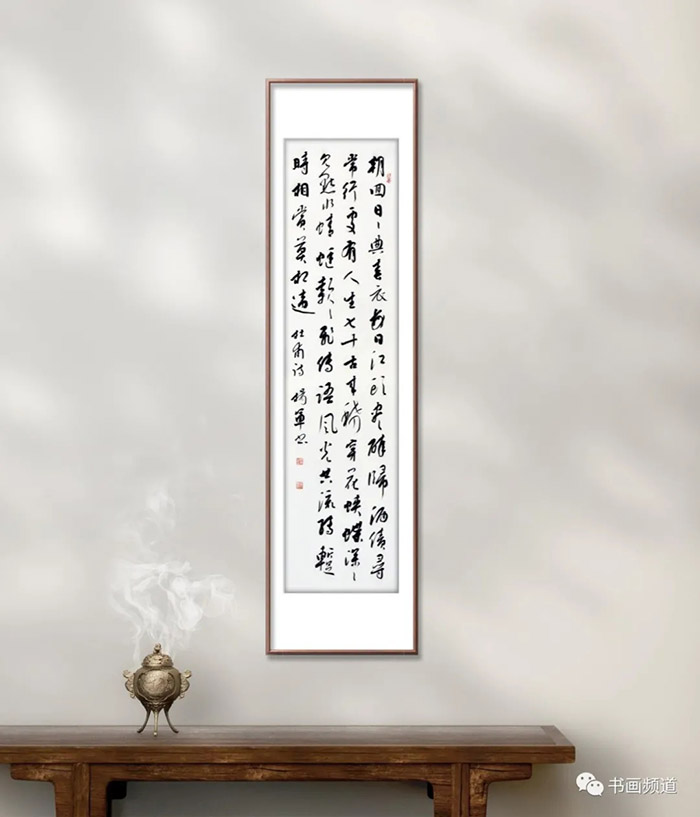 朝回日々典春衣每日江頭盡醉歸酒債尋
常行處有人生七十古來稀穿花蛺蝶深々
見點水蜻蜓款々飛傳語風光共流轉暫
時相賞莫相違 杜甫詩 楊軍書
书画频道